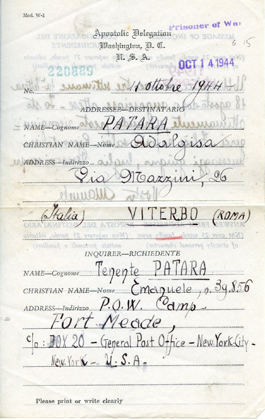 Mod. W-2
Prisoner of War
Apostolic Delegation
Washington, D. C.
U. S. A.
OCT 14 1944
No.
1 ottobre 1944
ADDRESSEE—DESTINATARIO
NAME—Cognome PATARA
CHRISTIAN NAME—Nome Adalgisa
ADDRESS—Indirizzo Via Mazzini, 96
(Italia) VITERBO (ROMA)
INQUIRER—RICHIEDENTE
NAME—Cognome Tenente PATARA
CHRISTIAN NAME—Nome Emanuele, n. 39.856
ADDRESS—Indirizzo P.O.W. Camp-
Fort Meade,
c/o: BOX 20 - General Post Office - New. York. City -
New. York. - U. S. A.
Please print or write clearly